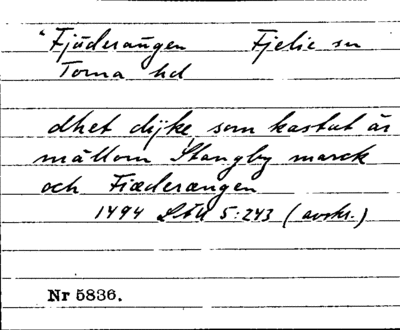 "Fjäderängen Fjelie sn
Torna hd
dhet dijke, som kastat är
mällom Stangby marck
och Fiæderængen
1494 LÄU 5:243 (avskr.)
Nr 5836.